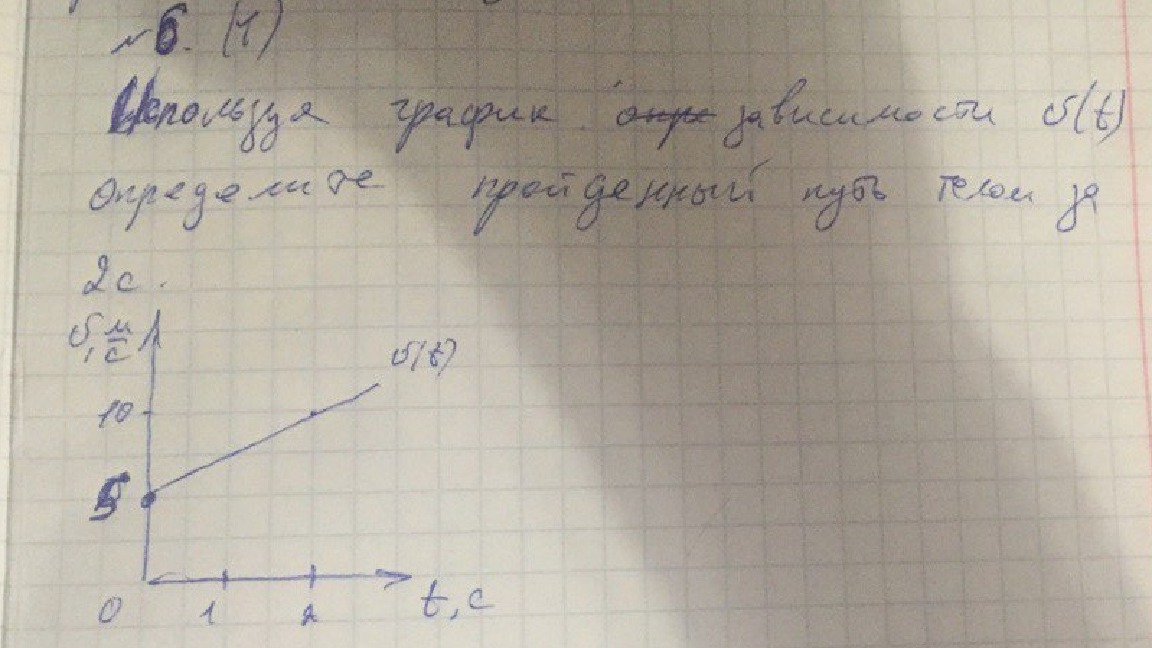 №6. (1)
Используя график зависимости υ(t)
определите пройденный путь телом за
2с.
υ, м/с
υ(t)
10
5
0 1 2 t, c